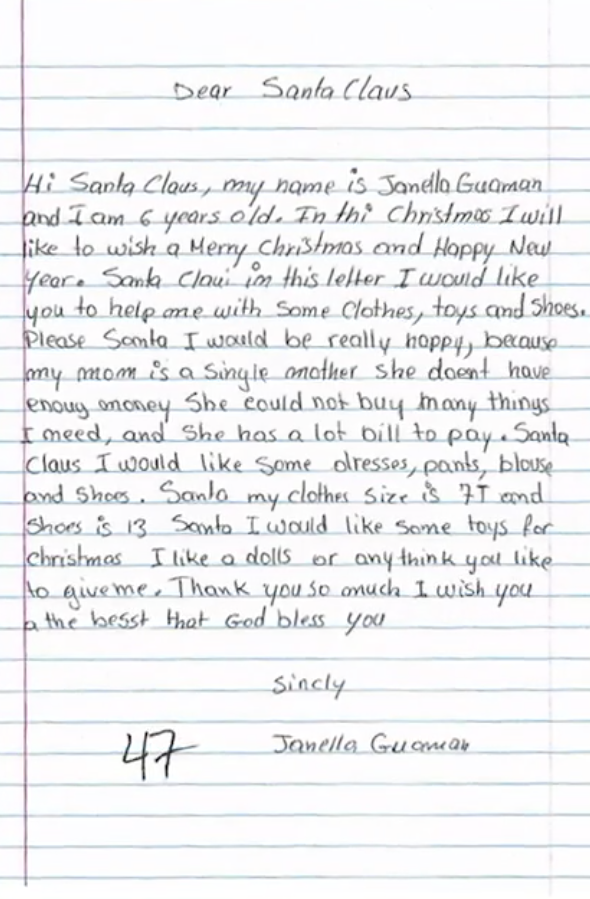 Dear Santa Claus
Hi Santa Claus, my name is Janella Guaman
and I am 6 years old. In thi Christmas I will
like to wish a Merry Christmas and Happy New
Year. Santa Claui in this letter I would like
you to help me with some clothes, toys and shoes.
Please Santa I would be really happy, because
my mom is a single mother she doent have
enoug money she could not buy many things
I need, and she has a lot bill to pay. Santa
Claus I would like some dresses, pants, blouse
and shoes. Santa my clothes size is 7T and
shoes is 13 Santa I would like some toys for
christmas I like a dolls or any think you like
to give me. Thank you so much I wish you
a the besst that God bless you
Sincly
47 Janella Guaman